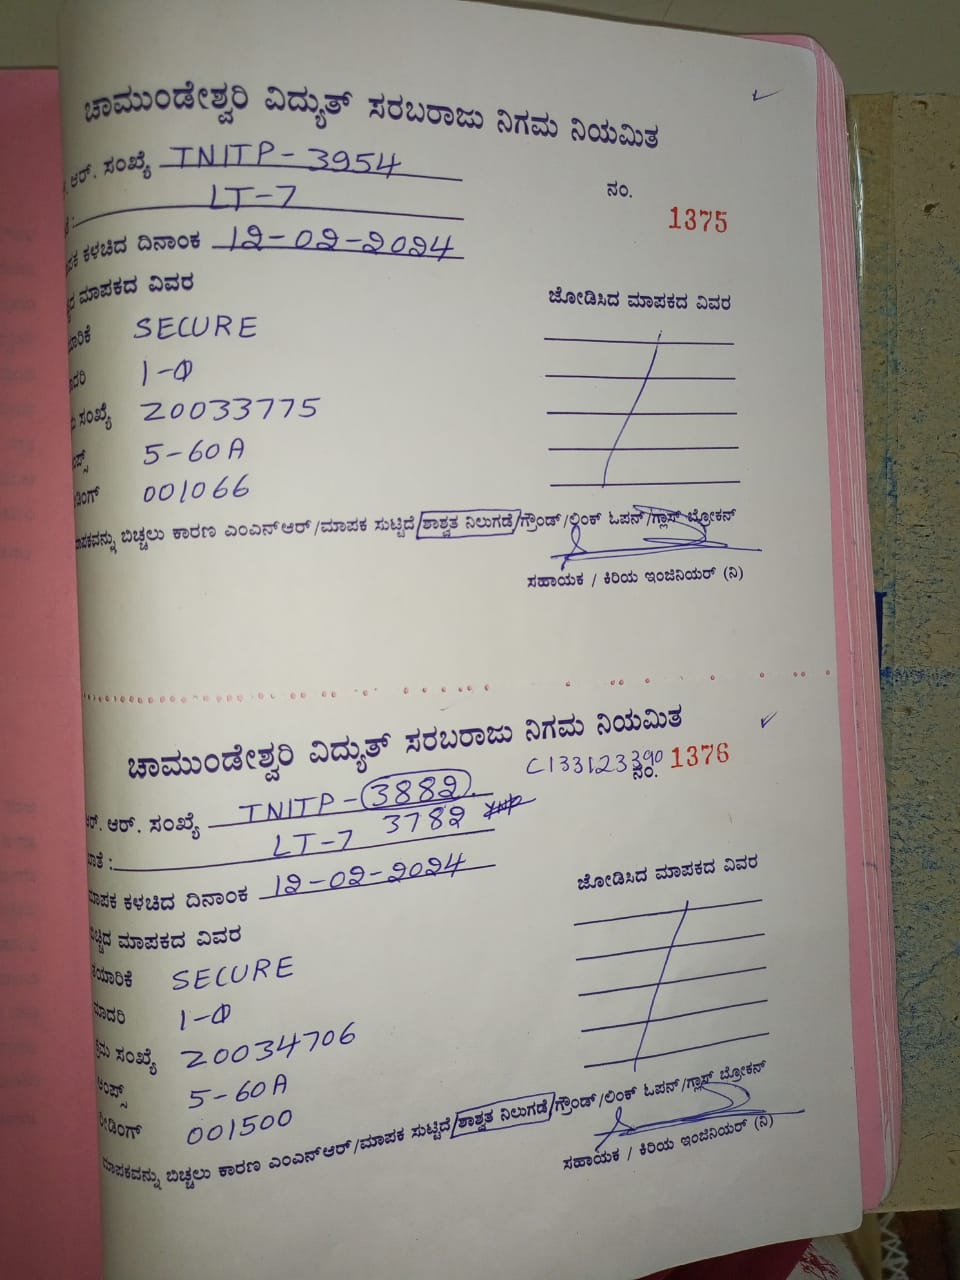 ಚಾಮುಂಡೇಶ್ವರಿ ವಿದ್ಯುತ್ ಸರಬರಾಜು ನಿಗಮ ನಿಯಮಿತ
ಆರ್. ಸಂಖ್ಯೆ TNITP-3954
ನಂ. 1375
LT-7
ಕಳಚಿದ ದಿನಾಂಕ 12-02-2024
ಮಾಪಕದ ವಿವರ
ಜೋಡಿಸಿದ ಮಾಪಕದ ವಿವರ
SECURE
1-Φ
ಸಂಖ್ಯೆ 20033775
5-60A
001066
ಬಿಚ್ಚಲು ಕಾರಣ ಎಂಎನ್ಆರ್/ಮಾಪಕ ಸುಟ್ಟಿದೆ/ಶಾಶ್ವತ ನಿಲುಗಡೆ/ಗ್ರೌಂಡ್/ಲಿಂಕ್ ಓಪನ್/ಗ್ಲಾಸ್ ಬ್ರೋಕನ್
ಸಹಾಯಕ / ಕಿರಿಯ ಇಂಜಿನಿಯರ್ (ನಿ)
ಚಾಮುಂಡೇಶ್ವರಿ ವಿದ್ಯುತ್ ಸರಬರಾಜು ನಿಗಮ ನಿಯಮಿತ
C133123390
ನಂ. 1376
ಆರ್. ಆರ್. ಸಂಖ್ಯೆ TNITP-3882
LT-7 3782
ಮಾಪಕ ಕಳಚಿದ ದಿನಾಂಕ 12-02-2024
ಬಿಚ್ಚಿದ ಮಾಪಕದ ವಿವರ
ಜೋಡಿಸಿದ ಮಾಪಕದ ವಿವರ
ತಯಾರಿಕೆ SECURE
ಮಾದರಿ 1-Φ
ಕ್ರಮ ಸಂಖ್ಯೆ 20034706
ಆಂಪ್ಸ್ 5-60A
ರೀಡಿಂಗ್ 001500
ಮಾಪಕವನ್ನು ಬಿಚ್ಚಲು ಕಾರಣ ಎಂಎನ್ಆರ್/ಮಾಪಕ ಸುಟ್ಟಿದೆ/ಶಾಶ್ವತ ನಿಲುಗಡೆ/ಗ್ರೌಂಡ್/ಲಿಂಕ್ ಓಪನ್/ಗ್ಲಾಸ್ ಬ್ರೋಕನ್
ಸಹಾಯಕ / ಕಿರಿಯ ಇಂಜಿನಿಯರ್ (ನಿ)